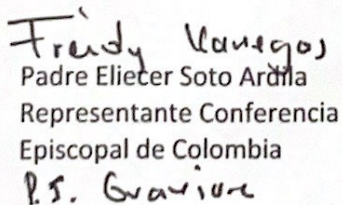 Freidy Vanegas
Padre Eliecer Soto Ardila
Representante Conferencia
Episcopal de Colombia
P.S.